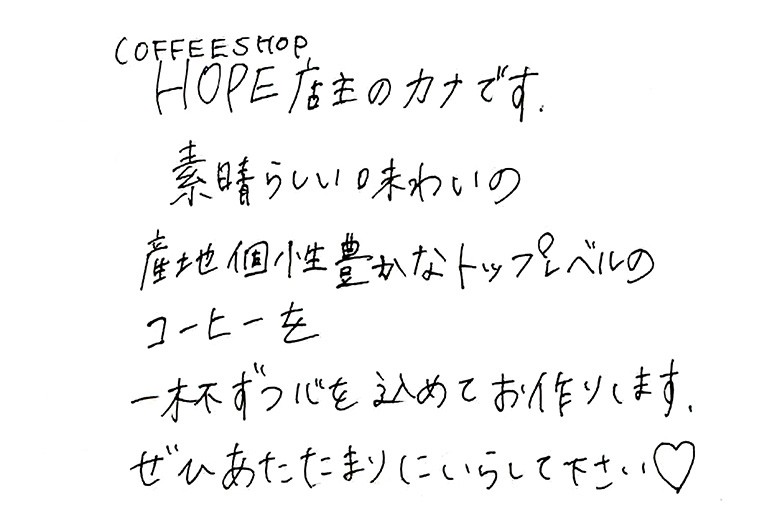 COFFEESHOP
HOPE店主のカナです.
素晴らしい味わいの
産地個性豊かなトップレベルの
コーヒーを
一杯ずつ心を込めてお作りします.
ぜひあたたまりにいらして下さい♡